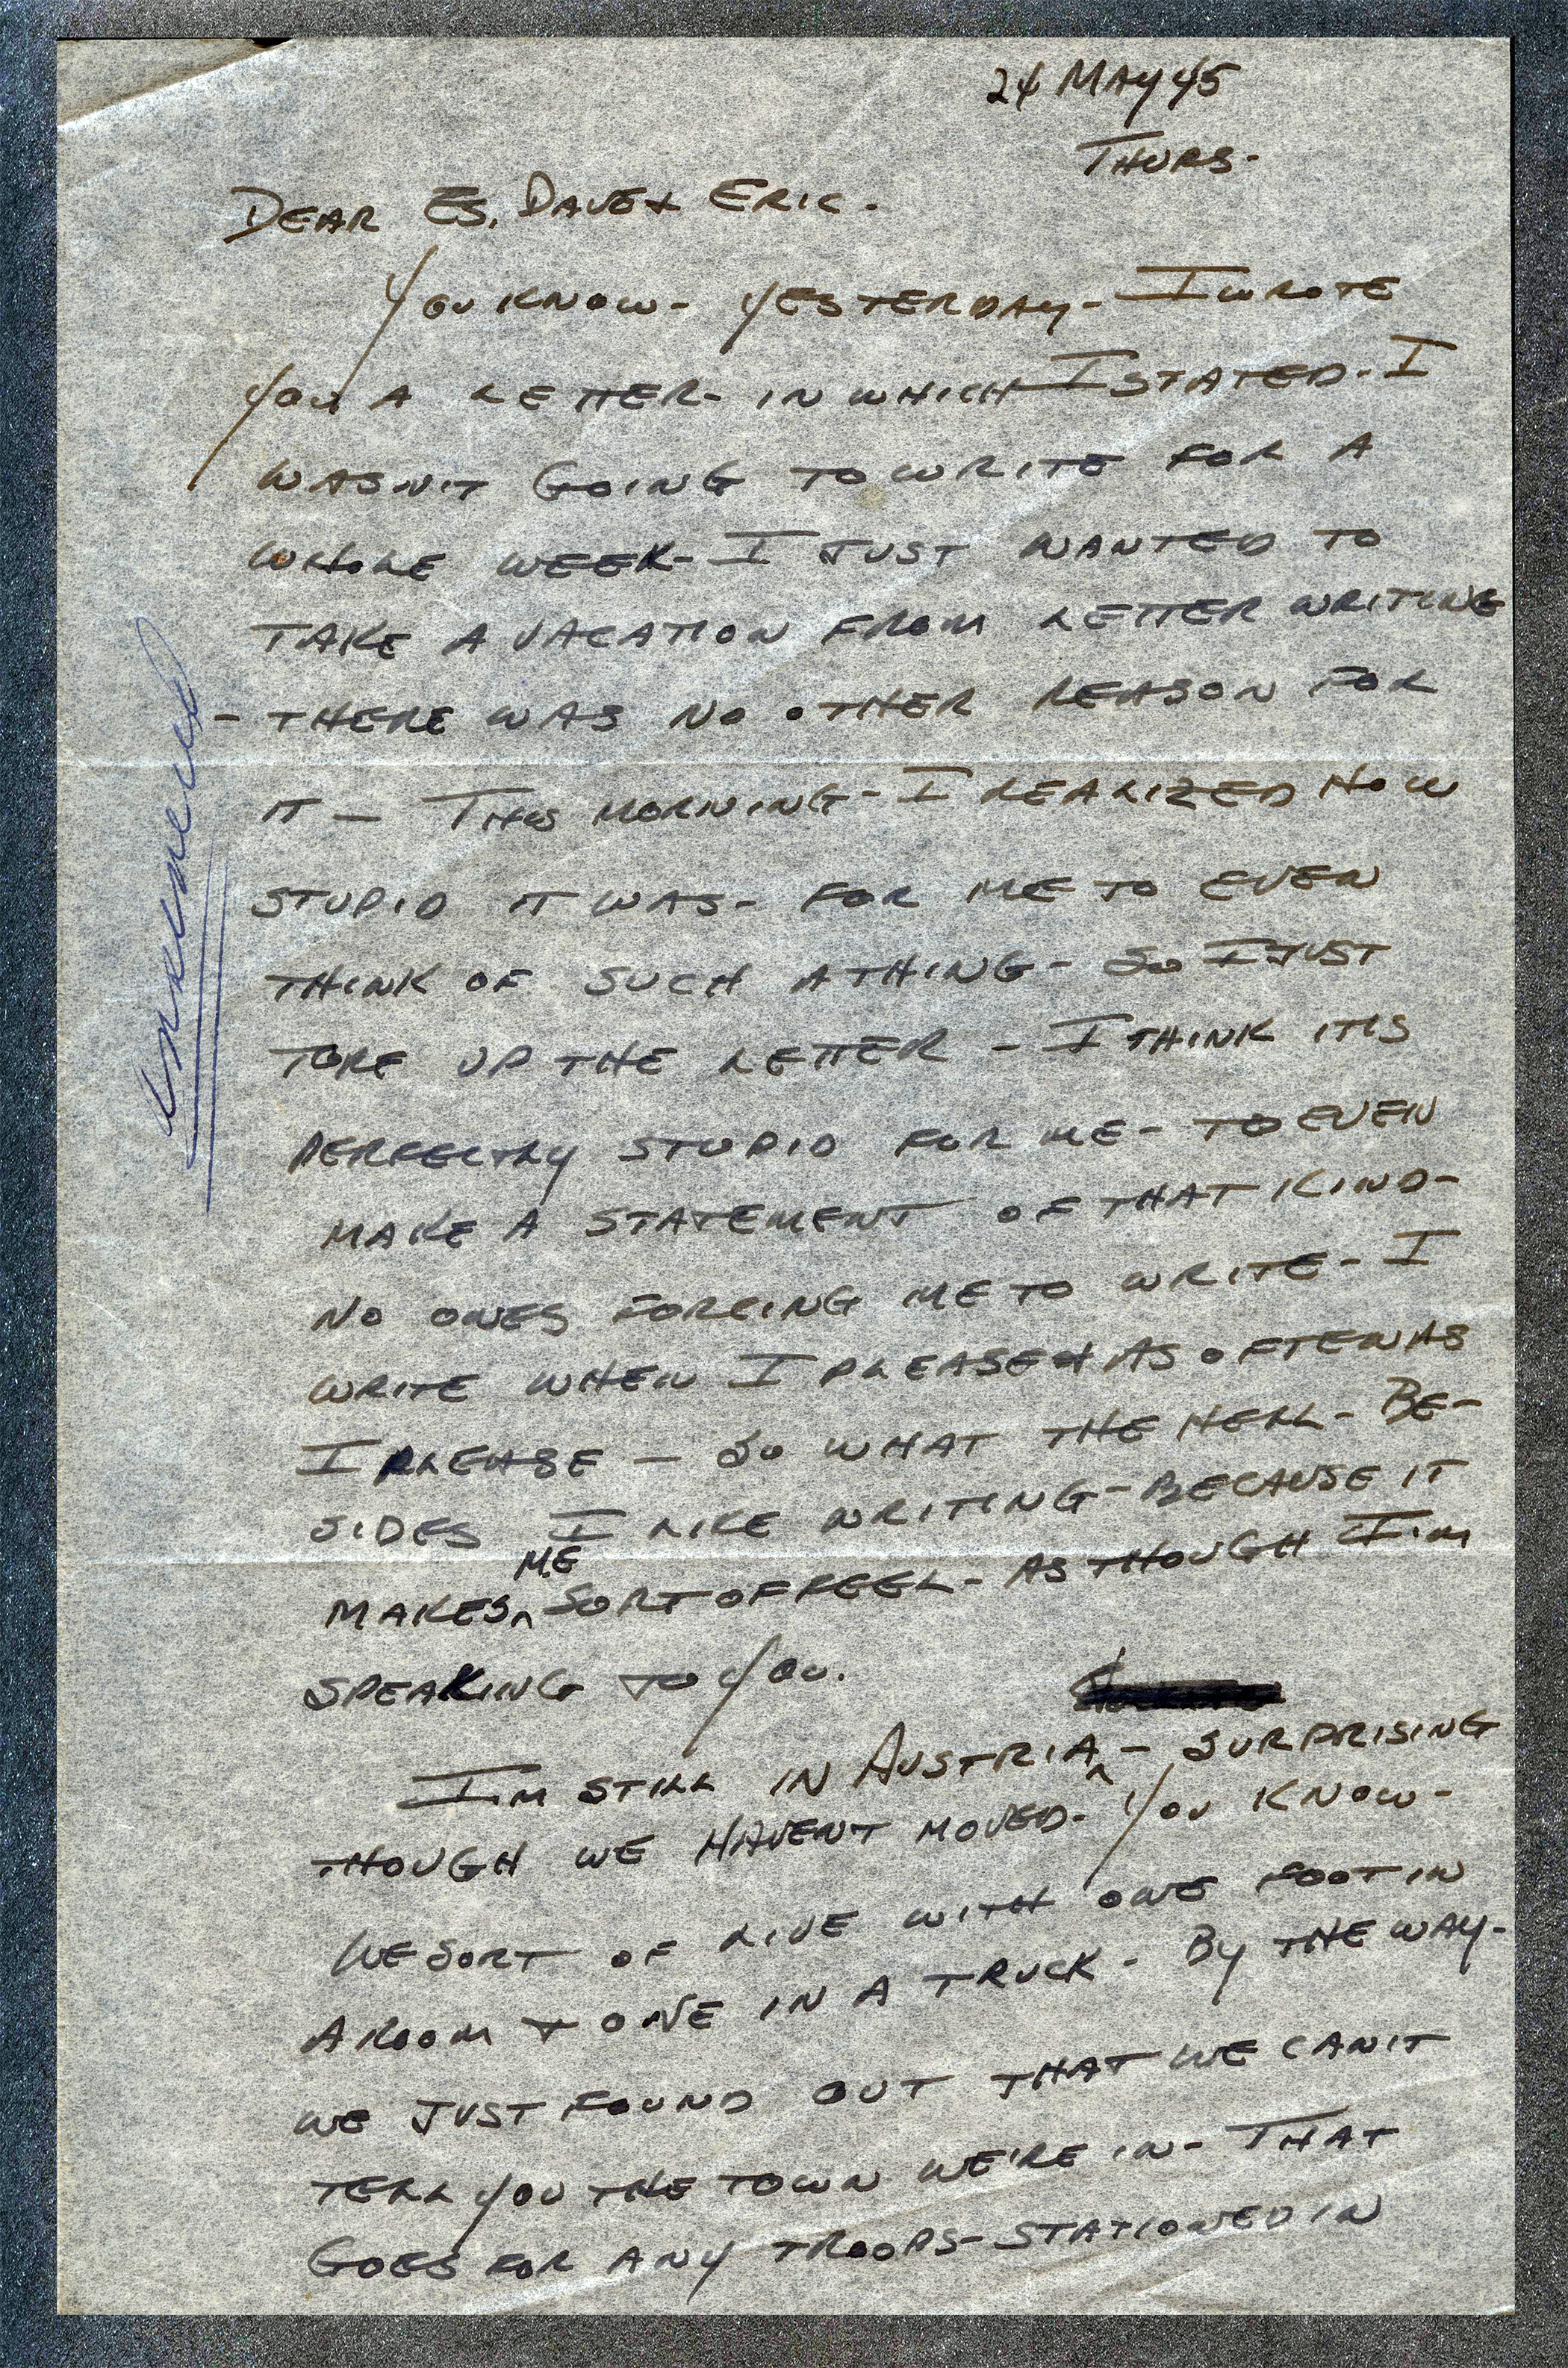 24 MAY 45
THURS-
DEAR ES, DAVE & ERIC-
YOU KNOW- YESTERDAY- I WROTE
YOU A LETTER- IN WHICH I STATED- I
WASN'T GOING TO WRITE FOR A
WHOLE WEEK- I JUST WANTED TO
TAKE A VACATION FROM LETTER WRITING
- THERE WAS NO OTHER REASON FOR
IT - THIS MORNING- I REALIZED HOW
STUPID IT WAS- FOR ME TO EVEN
THINK OF SUCH A THING- SO I JUST
TORE UP THE LETTER - I THINK IT'S
PERFECTLY STUPID FOR ME- TO EVEN
MAKE A STATEMENT OF THAT KIND-
NO ONES FORCING ME TO WRITE- I
WRITE WHEN I PLEASE & AS OFTEN AS
I PLEASE - SO WHAT THE HELL- BE-
SIDES I LIKE WRITING- BECAUSE IT
MAKES ME SORT OF FEEL- AS THOUGH I'M
SPEAKING TO YOU.
I'M STILL IN AUSTRIA - SURPRISING
THOUGH WE HAVEN'T MOVED- YOU KNOW-
WE SORT OF LIVE WITH ONE FOOT IN
A ROOM & ONE IN A TRUCK- BY THE WAY-
WE JUST FOUND OUT THAT WE CAN'T
TELL YOU THE TOWN WE'RE IN- THAT
GOES FOR ANY TROOPS- STATIONED IN